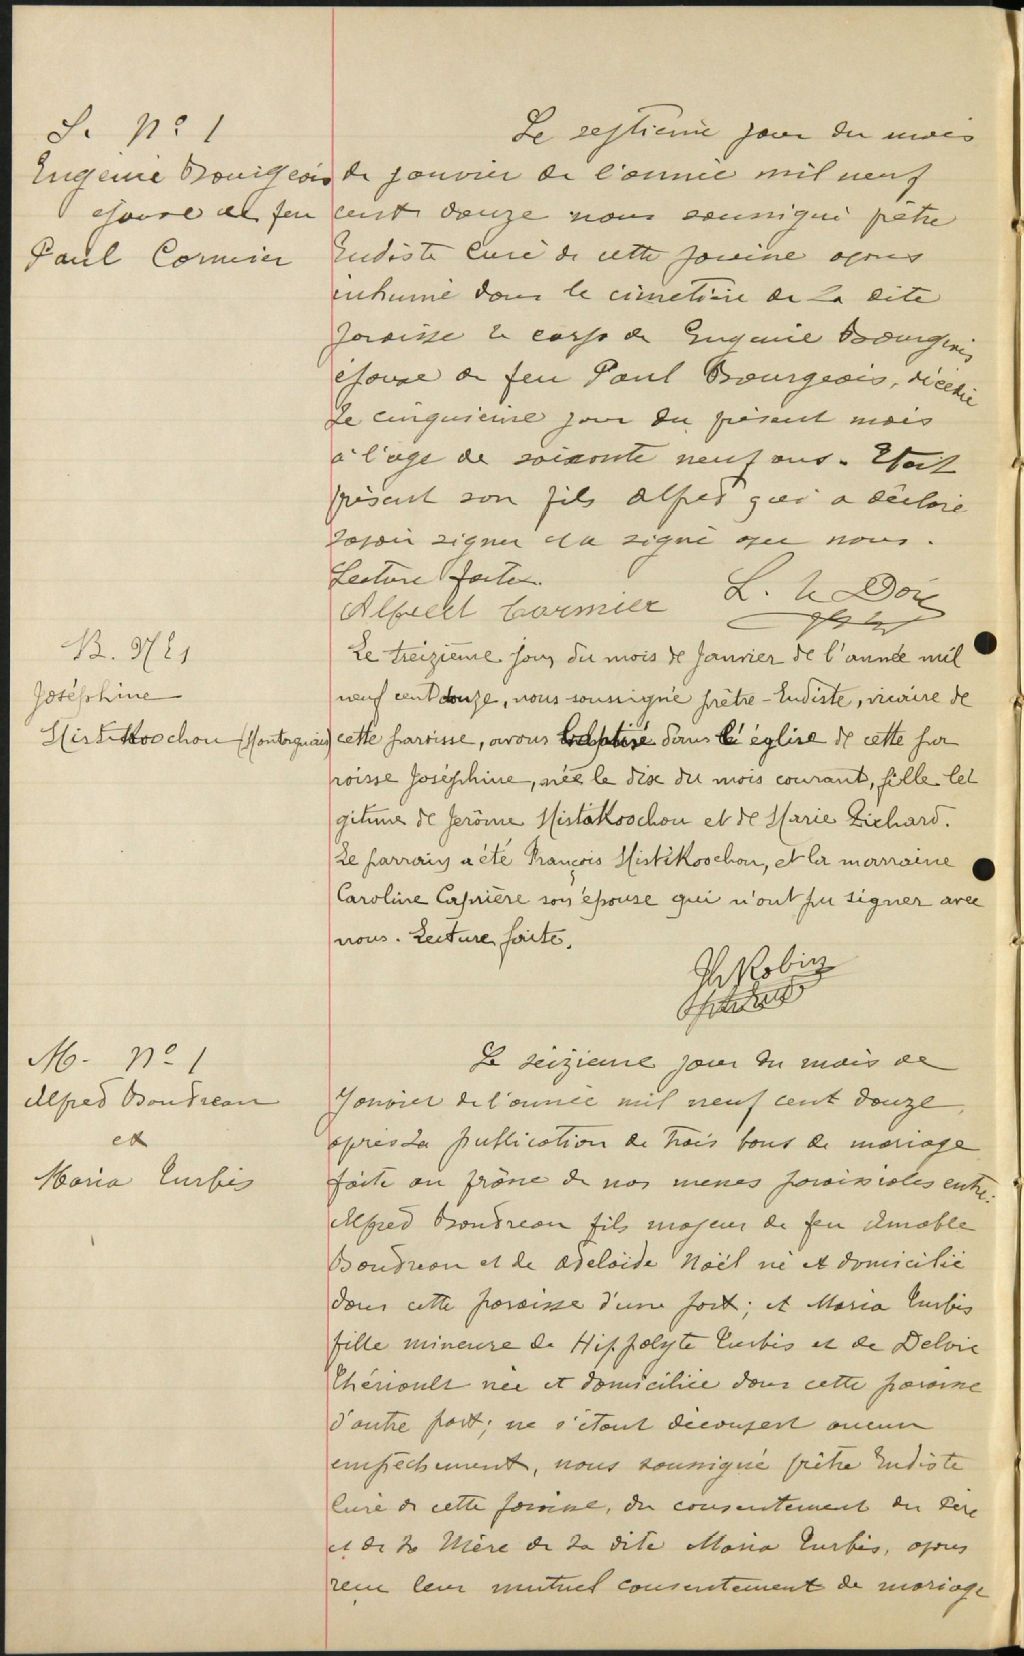 S. No 1
Eugénie Bourgeois
épouse de feu
Paul Cormier
Le septième jour du mois
de janvier de l'année mil neuf
cent douze nous soussigné prêtre
Eudiste Curé de cette paroisse avons
inhumé dans le cimetière de la dite
paroisse le corps de Eugénie Bourgeois
épouse de feu Paul Bourgeois, décédée
le cinquième jour du présent mois
à l'âge de soixante neuf ans. Etait
présent son fils Alfred qui a déclaré
savoir signer et a signé avec nous.
Lecture faite.
Alfred Cormier L. le Doré
ptre
B. No 1
Joséphine
Mistikoochou (Montagnais)
Le treizième jour du mois de Janvier de l'année mil
neuf cent douze, nous soussigné prêtre-Eudiste, vicaire de
cette paroisse, avons baptisé dans l'église de cette pa
roisse Joséphine, née le dix du mois courant, fille lé
gitime de Jérôme Mistikoochou et de Marie Richard.
Le parrain a été François Mistikoochou, et la marraine
Caroline Caprière son épouse qui n'ont pu signer avec
nous. Lecture faite.
Jh Robin
M. No 1
Alfred Boudreau
et
Maria Turbis
Le seizième jour du mois de
Janvier de l'année mil neuf cent douze,
après la publication de trois bans de mariage
faite au prône de nos messes paroissiales entre:
Alfred Boudreau fils majeur de feu Amable
Boudreau et de Adelaïde Noël né et domicilié
dans cette paroisse d'une part; et Maria Turbis
fille mineure de Hippolyte Turbis et de Delvie
Thériault née et domiciliée dans cette paroisse
d'autre part; ne s'étant découvert aucun
empêchement, nous soussigné prêtre Eudiste
Curé de cette paroisse, du consentement du Père
et de la Mère de la dite Maria Turbis, avons
reçu leur mutuel consentement de mariage